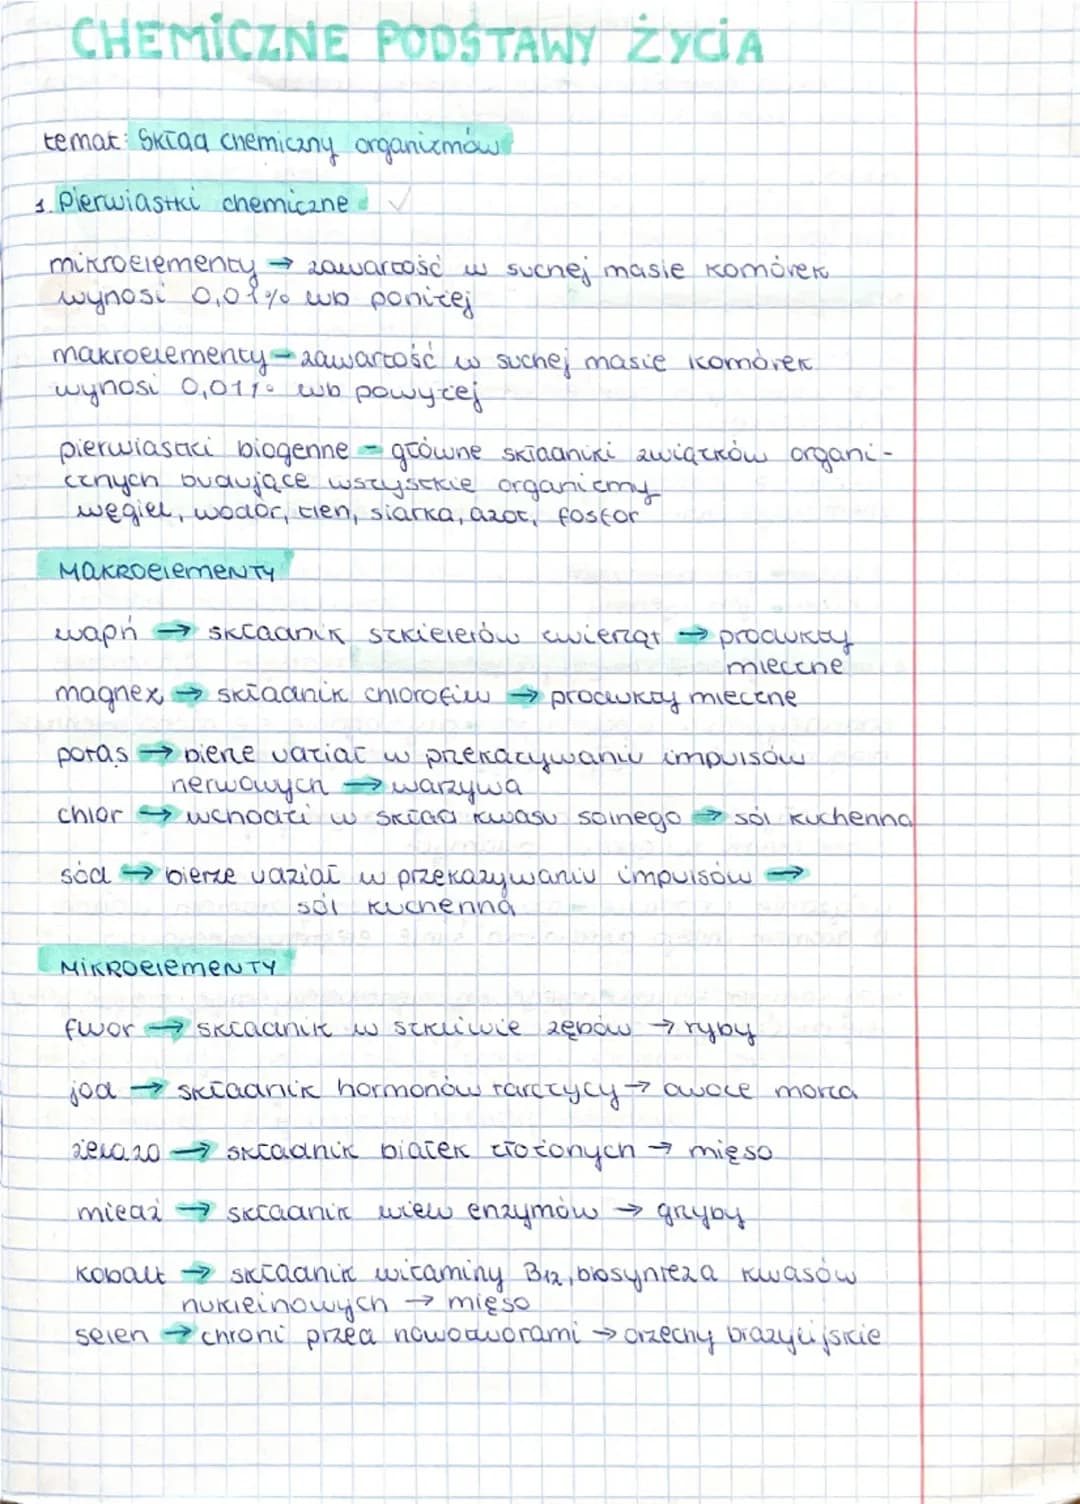 CHEMICZNE PODSTAWY ŻYCIA
temat: Skład chemiczny organizmów
1. Pierwiastki chemiczne
mikroelementy → zawartość w suchej masie komórek
wynosi 0,01% lub poniżej
makroelementy - zawartość w suchej masie komórek
wynosi 0,01% lub powyżej
pierwiastki biogenne - główne składniki związków organi-
cznych budujące wszystkie organizmy
węgiel, wodór, tlen, siarka, azot, fosfor
MAKROELEMENTY
wapń → składnik szkieletów zwierząt → produkty
mleczne
magnez → składnik chlorofilu → produkty mleczne
potas → bierze udział w przekazywaniu impulsów
nerwowych → warzywa
chlor → wchodzi w skład kwasu solnego → sól kuchenna
sód → bierze udział w przekazywaniu impulsów →
sól kuchenna
MIKROELEMENTY
fluor → składnik w szkliwie zębów → ryby
jod → składnik hormonów tarczycy → owoce morza
żelazo → składnik białek złożonych → mięso
miedź → składnik wielu enzymów → grzyby
kobalt → składnik witaminy B12, biosynteza kwasów
nukleinowych → mięso
selen → chroni przed nowotworami → orzechy brazylijskie